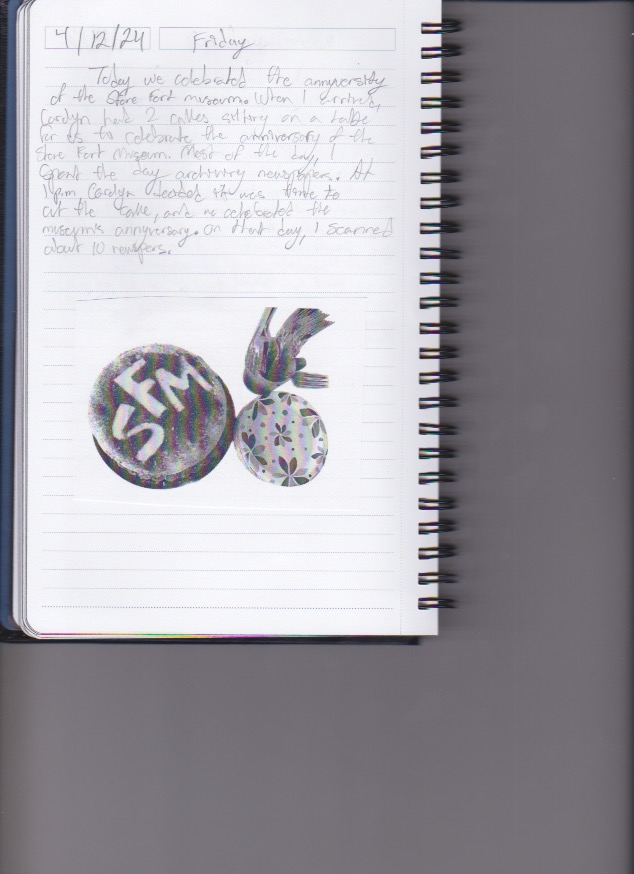 4/12/24 Friday
Today we celebrated the annyversity
of the Store Fort museum. When I arrived,
Carolyn had 2 cakes sitting on a table
for us to celebrate the anniversary of the
Store Fort Museum. Most of the day, I
spent the day archiving newspapers. At
1 p.m Carolyn decided it was time to
cut the cake, and we celebrated the
museum's annyversary. On that day, I scanned
about 10
SFM